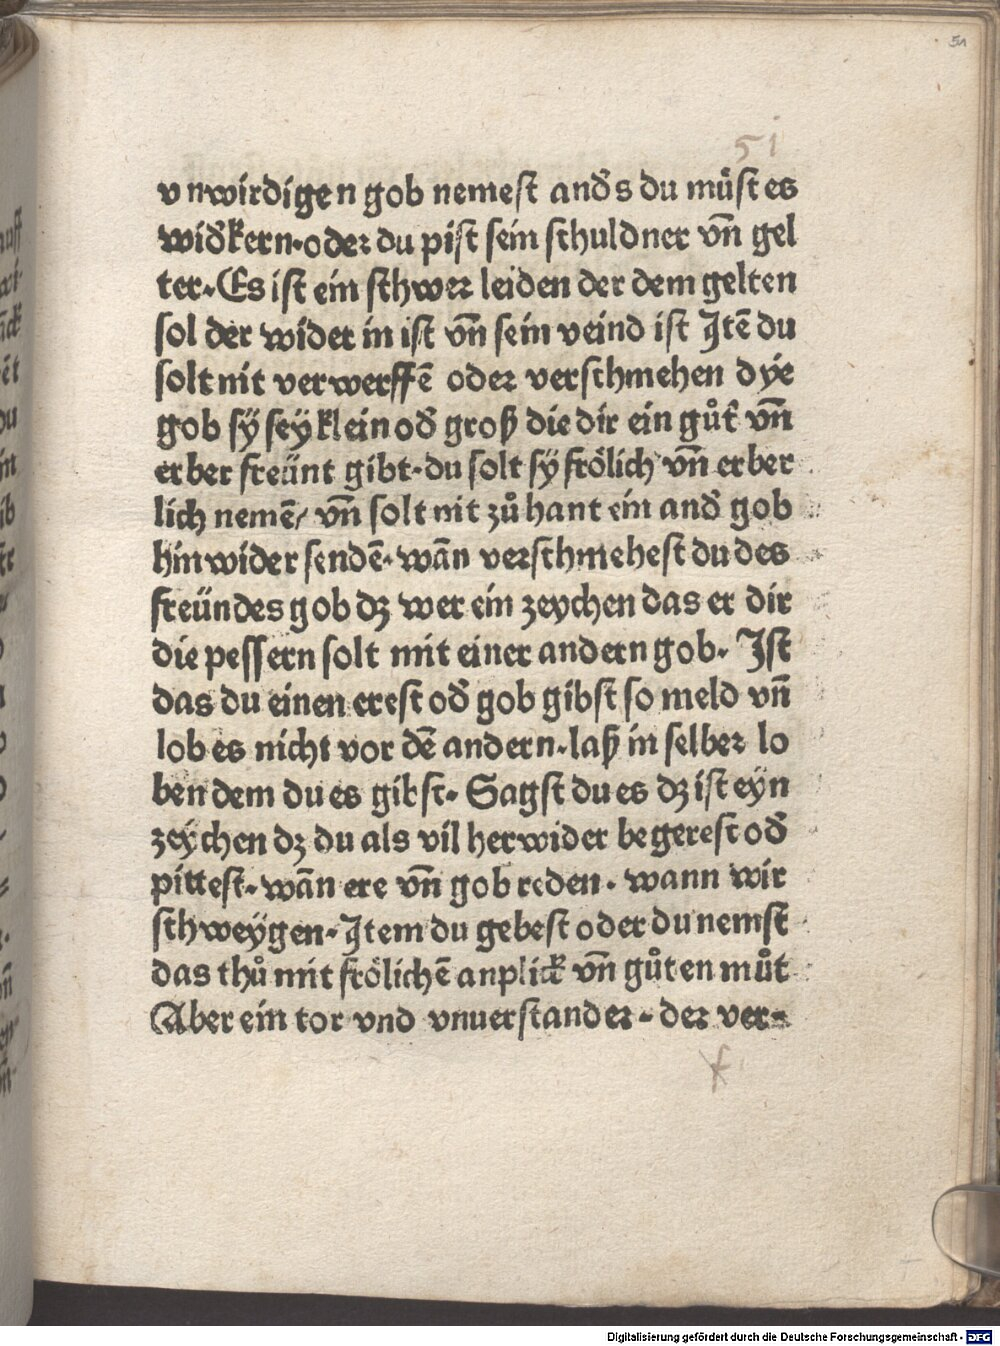 51
51
vnwirdigen gob nemest anđs du můst es
widkern·oder du pist sein schuldner vn̄ gel
ter·Es ist ein schwer leiden der dem gelten
sol der wider in ist vn̄ sein veind ist Jtē du
solt nit verwerffē oder verschmehen dÿe
gob sÿ seÿ klein ođ groß die dir ein gůt vn̄
erber freünt gibt·du solt sÿ frölich vn̄ erber
lich nemē/ vn̄ solt nit zů hant ein anđ gob
hin wider sendē·wān verschmehest du des
freündes gob dz wer ein zeychen das er dir
die pessern solt mit einer andern gob· Jst
das du einen erest ođ gob gibst so meld vn̄
lob es nicht vor dē andern·laß in selber lo
ben dem du es gibst· Sagst du es dz ist eÿn
zeÿchen dz du als vil her wider begerest ođ
pittest·wān ere vn̄ gob reden· wann wir
schweÿgen·Jtem du gebest oder du nemst
das thů mit frölichē anplick vn̄ gůten můt
Aber ein tor vnd vnuerstander· der ver-
f
Digitalisierung gefördert durch die Deutsche Forschungsgemeinschaft - DFG